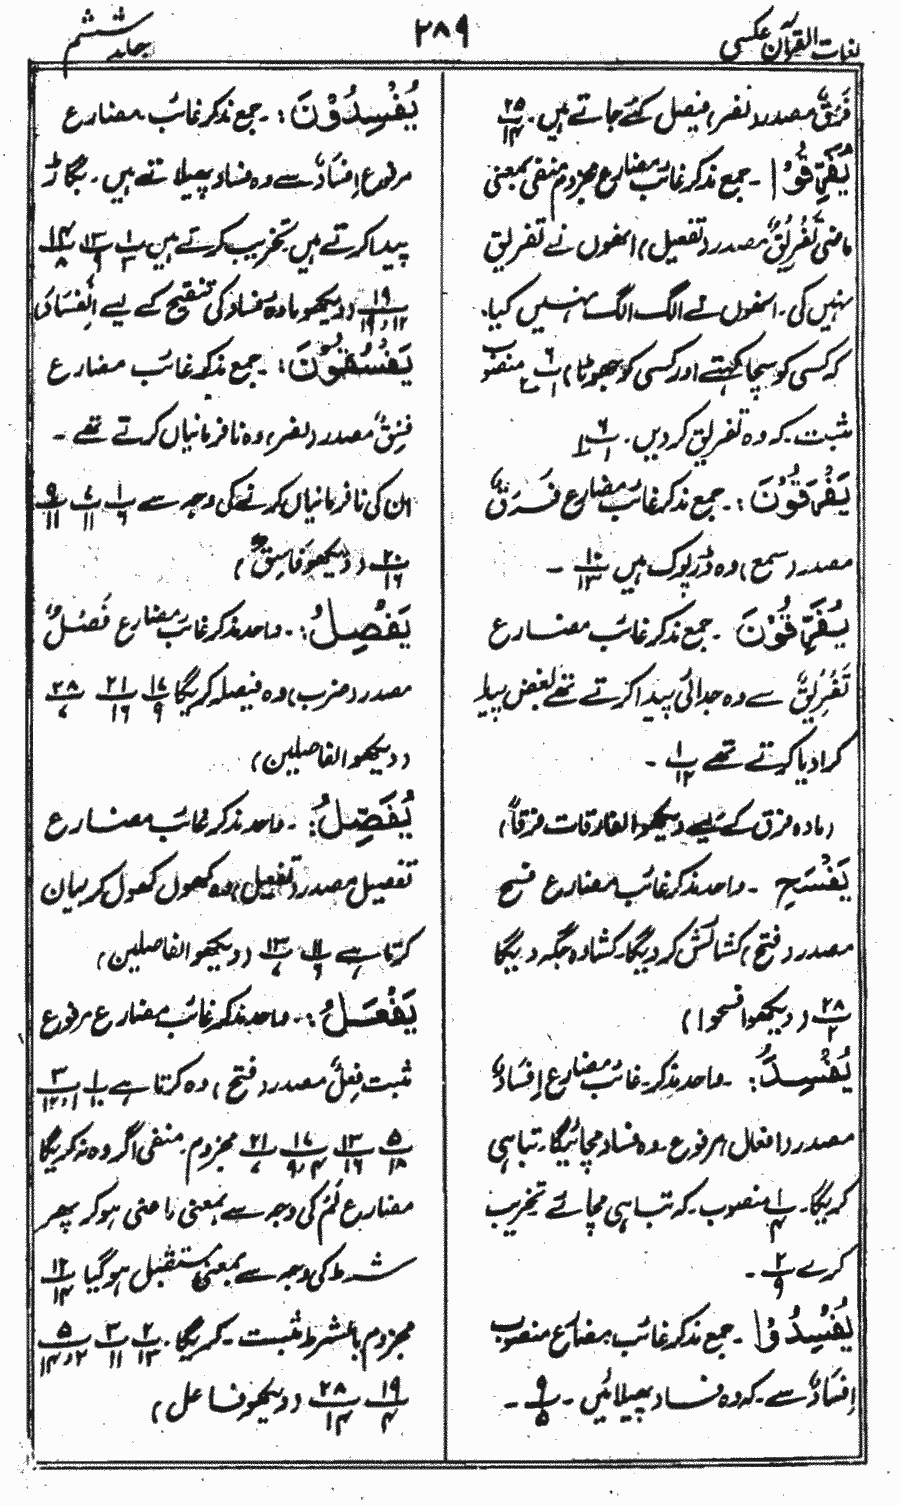 لغات القرآن عکسی
۲۸۹
جلد ششم
فَرْقٌ مصدر (نصر) فیصل کئے جاتے ہیں۔ ۲۵/۱۴
یُفَرِّقُوْا ۔ جمع مذکر غائب مضارع مجزوم منفی بمعنی
ماضی تَفْرِیْقٌ مصدر (تفعیل) انھوں نے تفریق
نہیں کی۔ انھوں نے الگ الگ نہیں کیا۔
کہ کسی کو سچا کہتے اور کسی کو جھوٹا) پ۶/۱ ۲ منصوب
مثبت۔ کہ وہ تفریق کر دیں۔ پ۶/۱
یَفْرَقُوْنَ : ۔ جمع مذکر غائب مضارع فَرَقٌ
مصدر (سمع) وہ ڈرپوک ہیں پ۱۰/۱۳ ۔
یُفَرِّقُوْنَ ۔ جمع مذکر غائب مضارع
تَفْرِیْقٌ سے وہ جدائی پیدا کرتے تھے بغض پیدا
کرا دیا کرتے تھے پ۱/۱۲ ۔
(مادہ فرق کے لیے دیکھو الفارقات فرقاً)
یَفْسَحِ ۔ واحد مذکر غائب مضارع فسح
مصدر (فتح) کشائش کر دیگا۔ کشادہ جگہ دیگا
پ۲۸/۲ (دیکھو افسحوا)
یُفْسِدُ : ۔ واحد مذکر غائب مضارع اِفْسَادٌ
مصدر (افعال) مرفوع۔ وہ فساد مچائیگا۔ تباہی
کریگا۔ پ۱/۴ منصوب۔ کہ تباہی مچائے تخریب
کرے پ۲/۹ ۔
یُفْسِدُوْا ۔ جمع مذکر غائب مضارع منصوب
اِفْسَادٌ سے ۔ کہ وہ فساد پھیلائیں ۔ پ۹/۵ ۔
یُفْسِدُوْنَ : ۔ جمع مذکر غائب مضارع
مرفوع اِفْسَادٌ سے وہ فساد پھیلاتے ہیں۔ بگاڑ
پیدا کرتے ہیں تخریب کرتے ہیں پ۱/۳ پ۱۳/۹ پ۱۴/۸
پ۱۹/۱۲،۱۹ (دیکھو مادہ فساد کی تنقیح کے لیے الْفَسَادَ)
یَفْسُقُوْنَ : ۔ جمع مذکر غائب مضارع
فِسْقٌ مصدر (نصر) وہ نافرمانیاں کرتے تھے ۔
ان کی نافرمانیاں کرنے کی وجہ سے پ۱/۶ پ۷/۱۱ پ۹/۱۱
پ۲۰/۱۶ (دیکھو فَاسِقٌ)
یَفْصِلُ : ۔ واحد مذکر غائب مضارع فَصْلٌ
مصدر (ضرب) وہ فیصلہ کریگا پ۱۷/۹ پ۲۱/۱۶ پ۲۸/۷
(دیکھو الفاصلین)
یُفَصِّلُ : ۔ واحد مذکر غائب مضارع
تفصیل مصدر (تفعیل) وہ کھول کھول کر بیان
کرتا ہے پ۱۱/۶ پ۱۳/۷ (دیکھو الفاصلین)
یَفْعَلُ : ۔ واحد مذکر غائب مضارع مرفوع
مثبت فِعْلٌ مصدر (فتح) وہ کرتا ہے پ۱/۱۰ پ۳/۱،۱۲
پ۵/۱۸ پ۱۳/۱۶ پ۱۷/۴،۹ پ۲۱/۷ مجزوم۔ منفی اگر وہ نہ کریگا
مضارع لَمْ کی وجہ سے بمعنی ماضی ہو کر پھر
شرط کی وجہ سے بمعنی مستقبل ہو گیا پ۱۲/۱۴
مجزوم بالشرط مثبت ۔ کریگا۔ پ۲/۱۳ پ۳/۱۱ پ۵/۲،۱۴
پ۱۹/۴ پ۲۸/۱۴ (دیکھو فاعل)